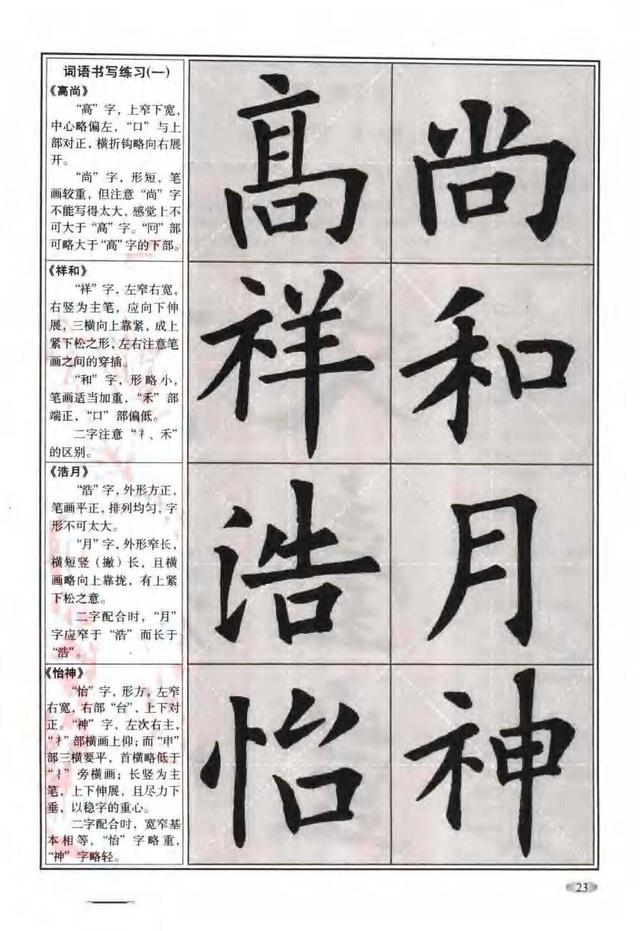 词语书写练习(一)
《高尚》
“高”字，上窄下宽，
中心略偏左，“口”与上
部对正，横折钩略向右展
开。
“尚”字，形短，笔
画较重，但注意“尚”字
不能写得太大，感觉上不
可大于“高”字。“冋”部
可略大于“高”字的下部。
髙尚
《祥和》
“祥”字，左窄右宽，
右竖为主笔，应向下伸
展，三横向上靠紧，成上
紧下松之形，左右注意笔
画之间的穿插。
“和”字，形略小，
笔画适当加重，“禾”部
端正，“口”部偏低。
二字注意“礻、禾”
的区别。
祥和
《浩月》
“浩”字，外形方正，
笔画平正，排列均匀，字
形不可太大。
“月”字，外形窄长，
横短竖（撇）长，且横
画略向上靠拢，有上紧
下松之意。
二字配合时，“月”
字应窄于“浩”而长于
“浩”。
浩月
《怡神》
“怡”字，形方，左窄
右宽，右部“台”，上下对
正。“神”字，左次右主，
“礻”部横画上仰；而“申”
部三横要平，首横略低于
“礻”旁横画；长竖为主
笔，上下伸展，且尽力下
垂，以稳字的重心。
二字配合时，宽窄基
本相等，“怡”字略重，
“神”字略轻。
怡神
23